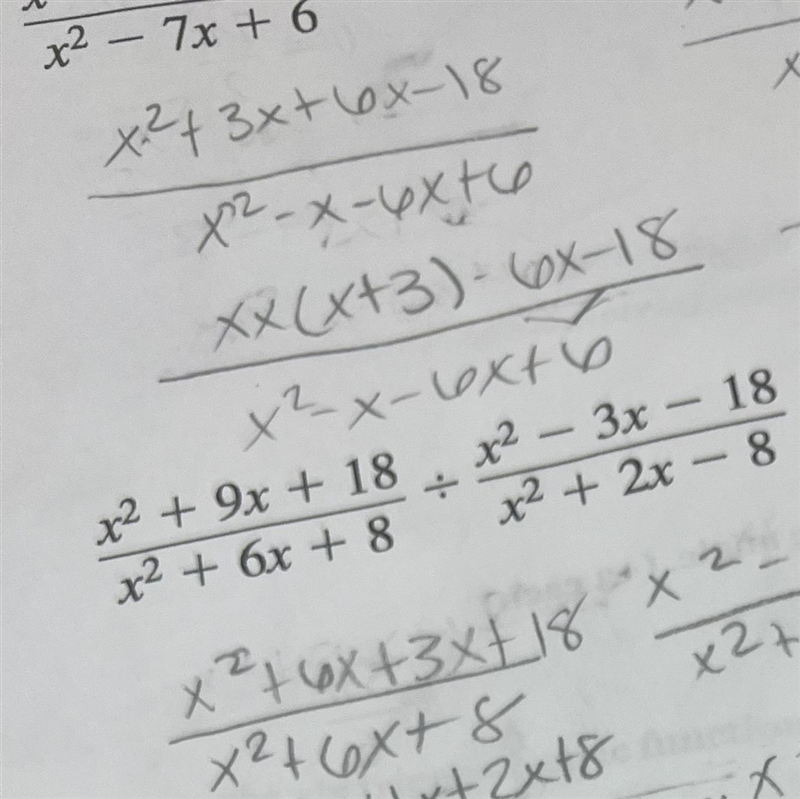 x² − 7x + 6
x² + 3x + 6x − 18
x² − x − 6x + 6
xx(x+3) - 6x − 18
x² − x − 6x + 6
x² + 9x + 18 ÷ x² − 3x − 18
x² + 6x + 8 x² + 2x − 8
x² + 6x + 3x + 18 x² −
x² + 6x + 8 x² +
x + 2x + 8 x